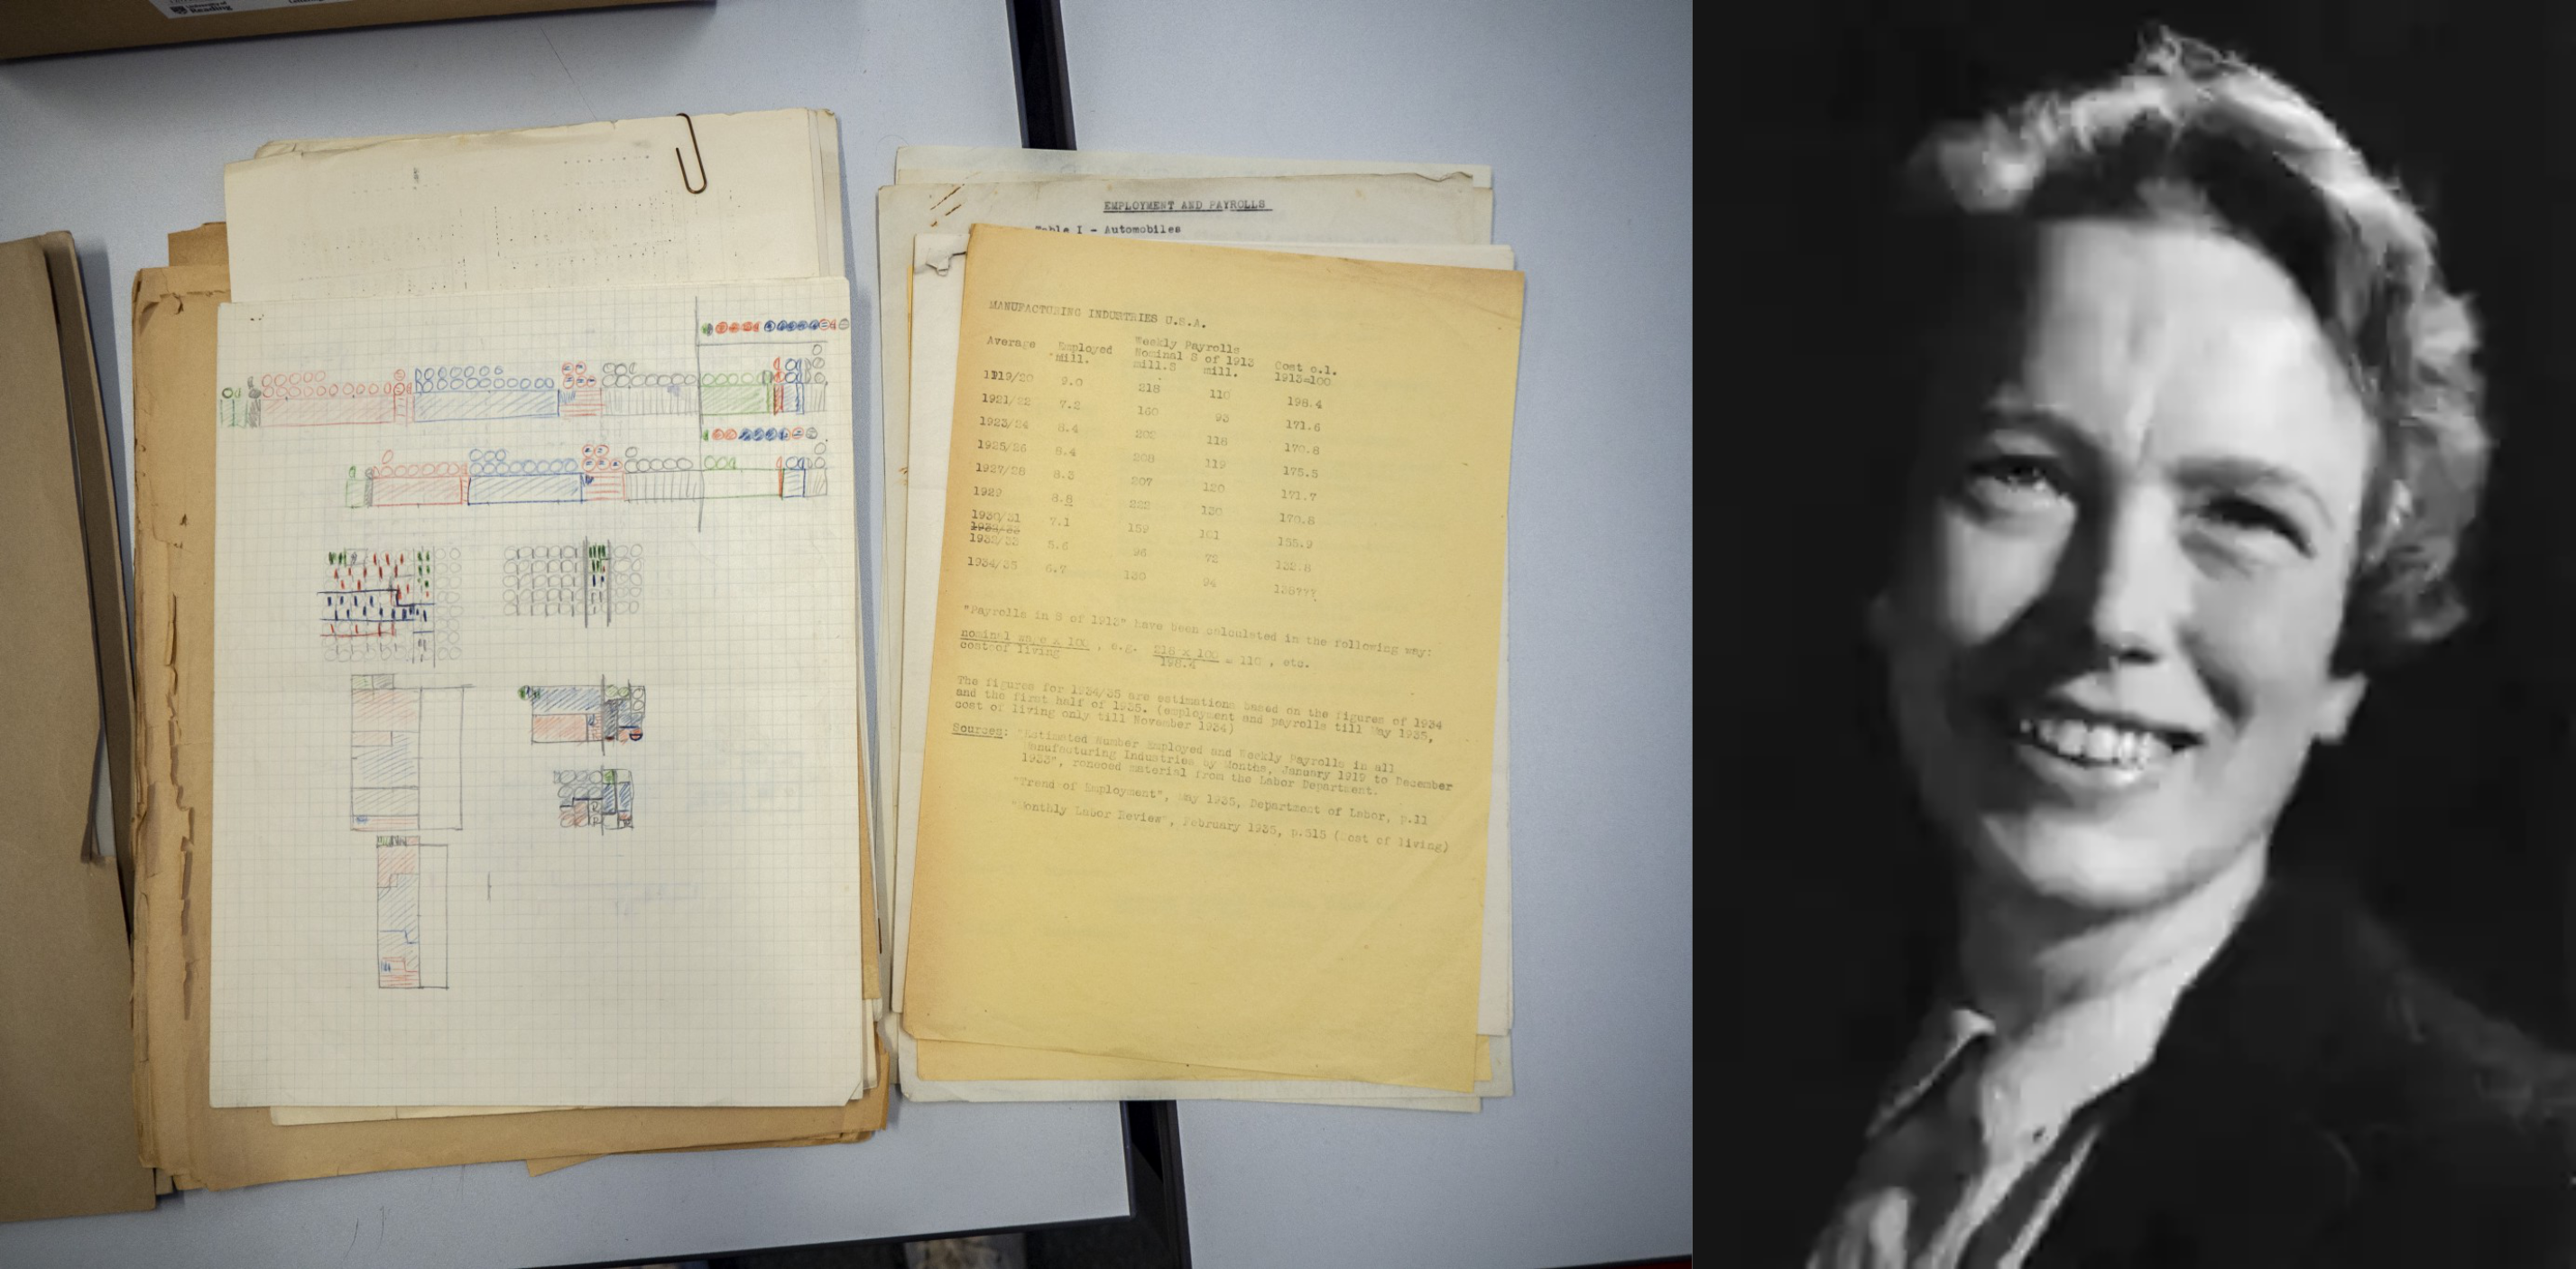 Reading
EMPLOYMENT AND PAYROLLS
Table I - Automobiles
MANUFACTURING INDUSTRIES U.S.A.
Average Employed Weekly Payrolls Cost o.l.
mill. Nominal $ of 1913 1913=100
mill.$ mill.
1919/20 9.0 218 110 198.4
1921/22 7.2 160 93 171.6
1923/24 8.4 202 118 170.8
1925/26 8.4 208 119 175.5
1927/28 8.3 207 120 171.7
1929 8.8 222 130 170.8
1930/31 7.1 159 101 155.9
1932/33
1932/33 5.6 96 72 132.8
1934/35 6.7 130 94 138???
"Payrolls in $ of 1913" have been calculated in the following way:
nominal wage x 100 , e.g. 218 x 100 = 110 , etc.
cost of living 198.4
The figures for 1934/35 are estimations based on the figures of 1934
and the first half of 1935. (employment and payrolls till May 1935,
cost of living only till November 1934)
Sources: "Estimated Number Employed and Weekly Payrolls in all
Manufacturing Industries by Months, January 1919 to December
1933", roneoed material from the Labor Department.
"Trend of Employment", May 1935, Department of Labor, p.11
"Monthly Labor Review", February 1935, p.515 (Cost of living)